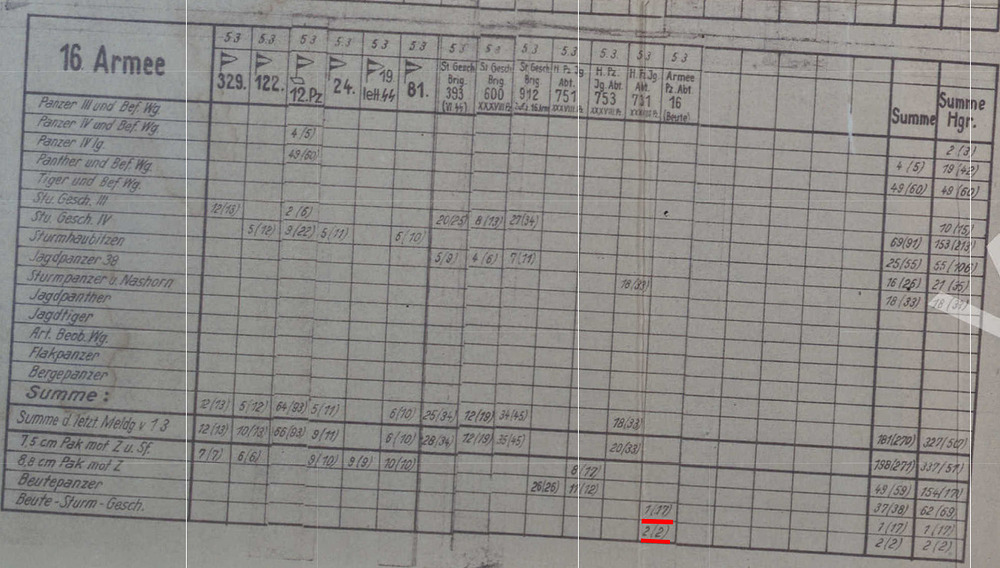 16 Armee
5.3 5.3 5.3 5.3 5.3 5.3 5.3 5.3 5.3 5.3 5.3 5.3 5.3
329. 122. 12.Pz 24. 19 lett.SS 81.
St. Gesch Brig. 393 (VI. SS)
St. Gesch Brig. 600 XXXVIII.Pz
St. Gesch Brig. 912
H. Pz. Jg. Abt. 751 XXXVIII.Pz
H. Pz. Jg. Abt. 753 XXXVIII.Pz
H. Pz Jg. Abt. 731 XXXVIII.Pz
Armee Pz. Abt. 16 (Beute)
Summe
Summe Hgr.
Panzer III und Bef. Wg. 2 (3)
Panzer IV und Bef. Wg. 4 (5) 4 (5) 19 (42)
Panzer IV lg. 49(60) 49 (60) 49 (60)
Panther und Bef. Wg.
Tiger und Bef. Wg. 10 (15)
Stu. Gesch. III 12(13) 2 (6) 20(25) 8 (13) 27(34) 69(91) 153(213)
Stu. Gesch. IV 5 (12) 9 (22) 5 (11) 6 (10) 25(55) 55 (106)
Sturmhaubitzen 5(9) 4 (6) 7(11) 16 (26) 21 (35)
Jagdpanzer 38 18(33) 18 (33) 18 (37)
Sturmpanzer u. Nashorn
Jagdpanther
Jagdtiger
Art. Beob. Wg.
Flakpanzer
Bergepanzer
Summe: 12(13) 5(12) 64(93) 5(11) 6(10) 25(34) 12(19) 34(45) 18(33) 181(270) 327(567)
Summe d. letzt. Meldg v 1 3 12(13) 10(13) 66(93) 9(11) 6(10) 28(34) 12(19) 35(45) 20(33) 198(271)
7,5 cm Pak mot Z u. Sf. 7(7) 6(6) 9(10) 9(9) 10(10) 8(17) 49 (59)
8,8 cm Pak mot Z 26(26) 11(12) 37(38) 62 (69)
Beutepanzer 1(17) 1(17) 1(17)
Beute-Sturm-Gesch. 2(2) 2(2) 2(2)